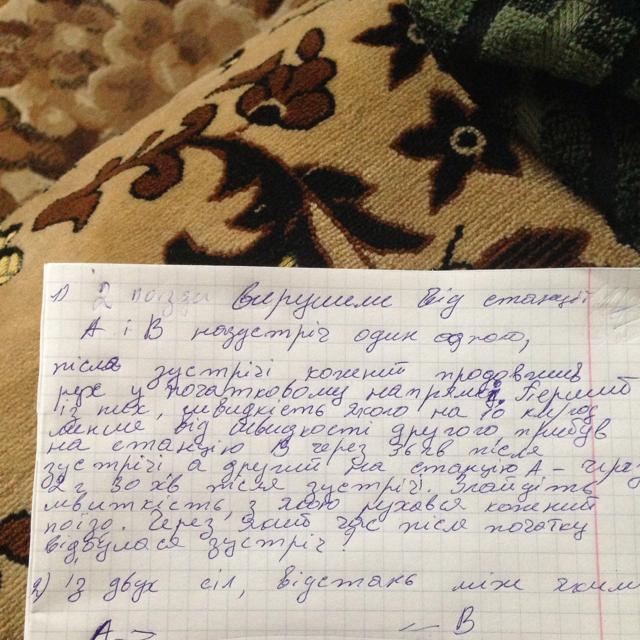 1) 2 поїзди вирушили від станції
А і В назустріч один одному,
після зустрічі кожний продовжив
рух у початковому напрямі. Перший
із них, швидкість якого на 10 км/год
менше від швидкості другого прибув
на станцію В через 36 хв після
зустрічі а другий на станцію А - через
2 г 30 хв після зустрічі. Знайдіть
швиткість, з якою рухався кожний
поїзд. Через який час після початку
відбулася зустріч?
2) із двух сіл, відстань між якими
А -> — В